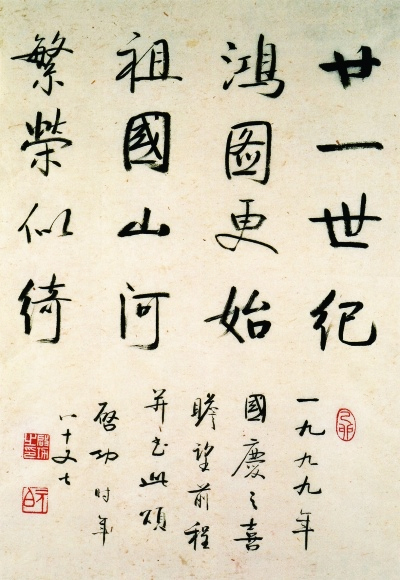 廿一世紀
鴻圖更始
祖國山河
繁榮似綺
一九九九年
國慶之喜
瞻望前程
并书此頌
啓功时年
八十又七
啓功之印
元白